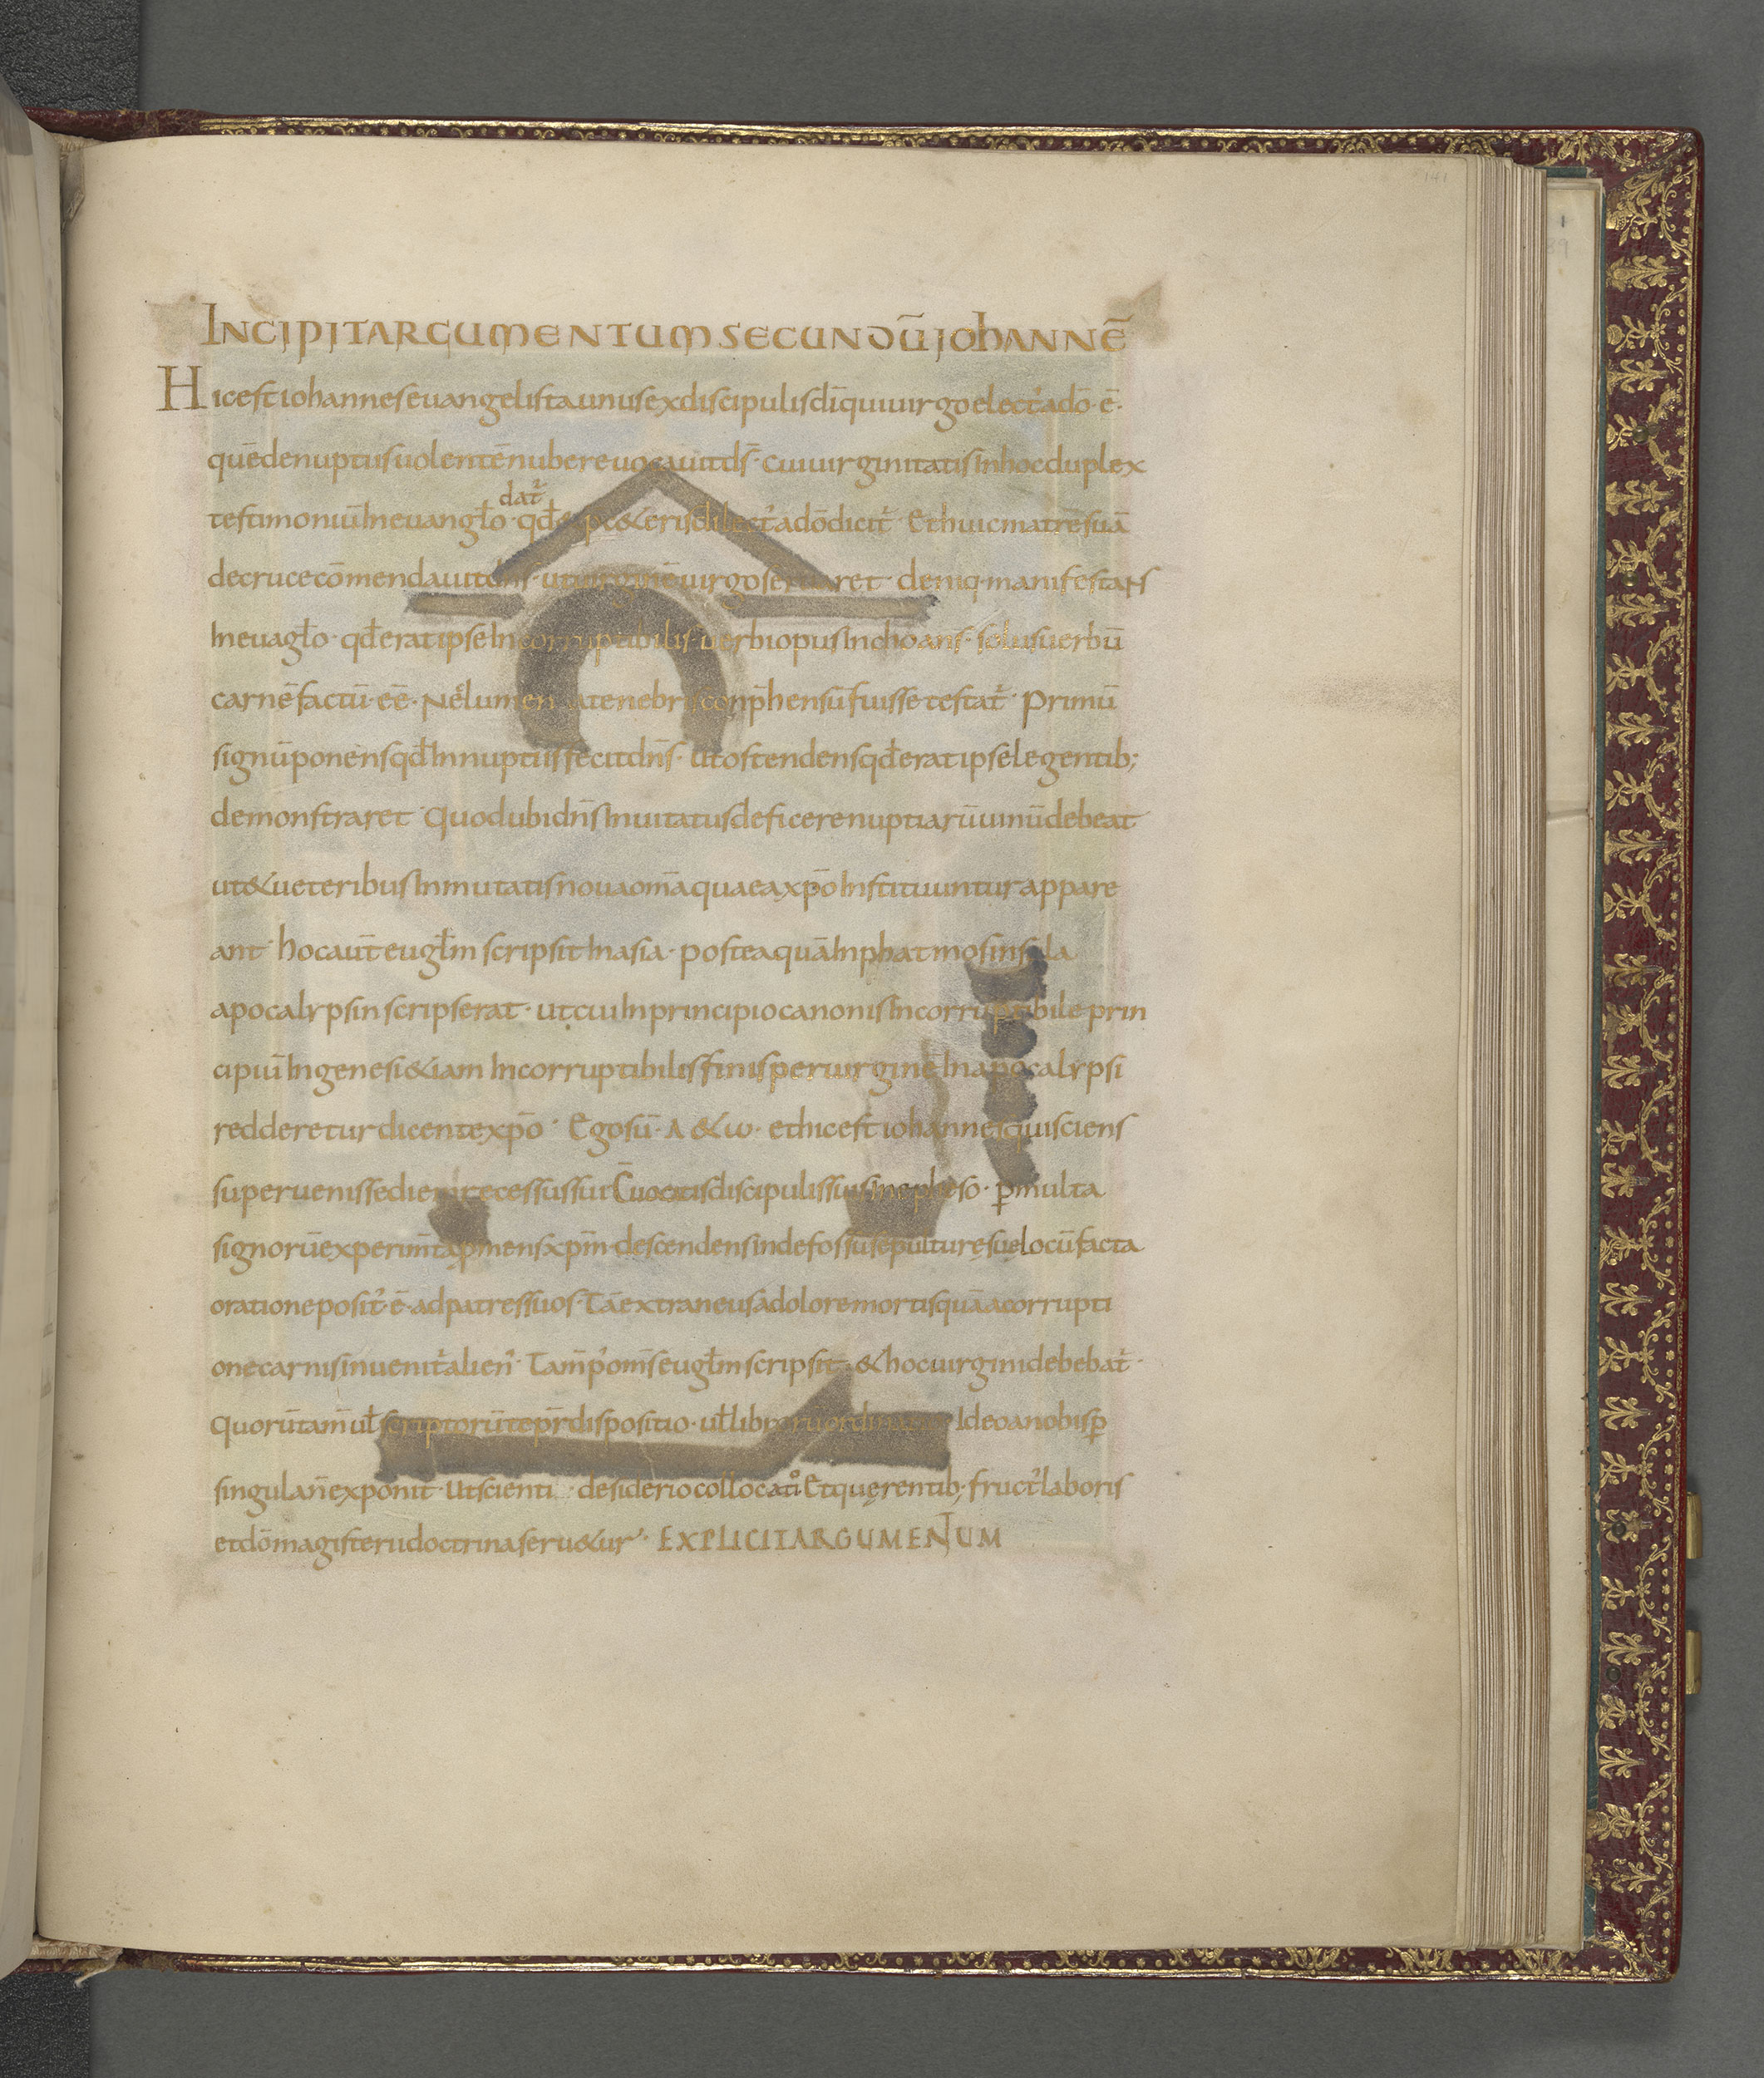 141
INCIPIT ARGUMENTUM SECUNDŪ IOHANNĒ
Hic est iohannes euangelista unus ex discipulis dī qui uirgo elect᾽ a dō· ē·
quē de nuptiis uolentē nubere uocauit dś· cui uirginitatis In hoc duplex
dat᾽
testimoniū In euanglō· qđ & p̄ cęteris dilect᾽ a dō dicit᾽· Et huic matrē suā
de cruce cōmendauit dn̄s· ut uirginē uirgo seruaret· deniq· manifestans
In euaglō· qđ erat ipse Incorruptibilis uerbi opus Inchoans· solus uerbū
carnē factū· eē· Nec lumen a tenebris conp̄hensū fuisse testat᾽· Primū
signū ponens qđ In nuptiis fecit dn̄s· ut ostendens qđ erat ipse legentib;
demonstraret· Quod ubi dn̄s Inuitatus deficere nuptiarū uinū debeat
ut & ueteribus Inmutatis noua om̄a quae a xp̄o Instituuntur appare
ant· hoc aūt euglm̄ scripsit In asia· postea quā In phatmos insula
apocalypsin scripserat· ut cui In principio canonis Incorruptibile prin
cipiū In genesi & iam Incorruptibilis finis per uirginē In apocalypsi
redderetur dicente xp̄o· Ego sū· Α & ω· et hic est iohannes qui sciens
superuenisse diem recessus sui Cuocatis discipulis suis in epheso· ꝑ multa
signorū experim̄ta pmens xp̄m· descendens in defossū sepulturę suę locū facta
oratione posit᾽· ē· ad patres suos· Tā extraneus a dolore mortis quā a corrupti
one carnis inuenit᾽ alien᾽· Tam̄ p᾽ om̄s euglm̄ scripsit· & hoc uirgini debebat᾽·
Quorū tam̄ ul̄ scriptorū tēpr̄ dispositio· ul̄ librorū ordinatio Ideo a nobis ꝑ
singula n̄ exponit· Ut scienti desiderio collocato Et quęrentib; fruct᾽ laboris
et dō magisterii doctrina seru&ur· EXPLICIT ARGUMENTUM